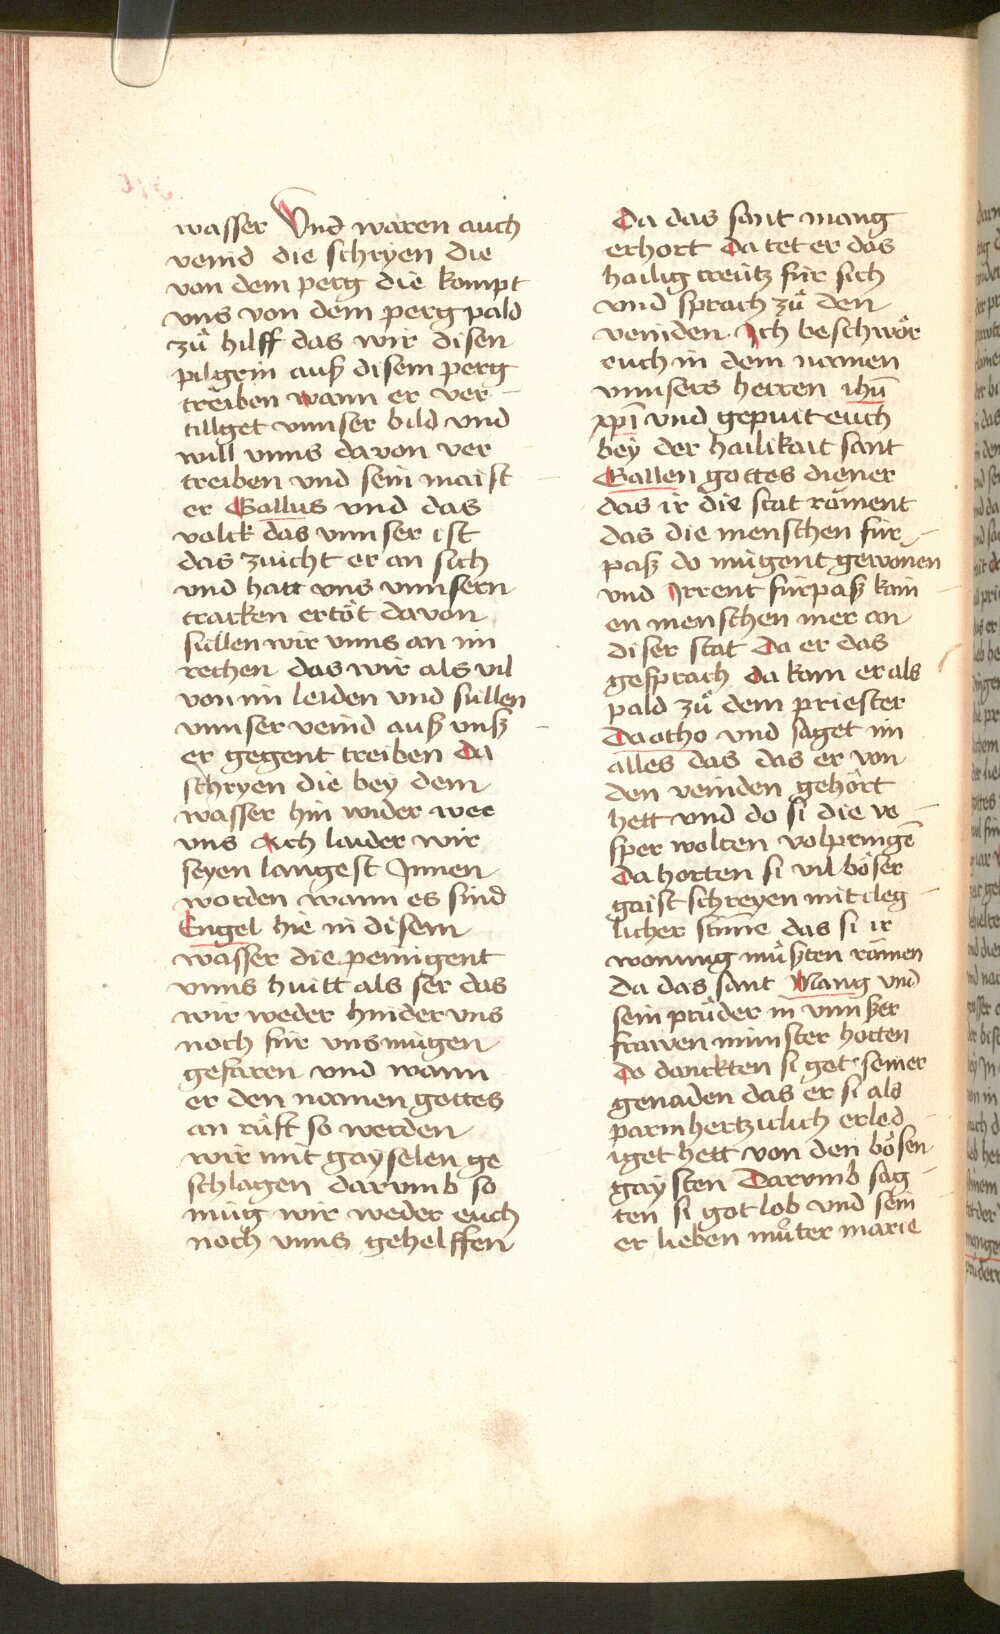 wasser Vnd waren auch
veind die schryen die
von dem perg die kompt
vns von dem perg pald
zů hilff das wir disen
pilgrin auß disem perg
treiben wann er ver
tillget vnnser bild vnd
will vnns davon ver
treiben vnd sein maist
er Gallus vnd das
volck das vnnser ist
das zuicht er an sich
vnd hatt vns vnnsern
tracken ertöt davon
süllen wir vnns an im
rechen das wir als vil
von im leiden vnd süllen
vnnser veind auß vnß
er gegent treiben Da
schryen die bey dem
wasser hin wider wee
vns Ach laider wir
seyen langest Innen
worden wann es sind
Engel hie in disem
wasser die peinigent
vnns huitt als ser das
wir weder hinder vns
noch für vns mügen
gefaren vnd wann
er den nomen gottes
an rüft so werden
wir mit gayselen ge
schlagen darvmb so
müg wir weder euch
noch vnns gehelffen
Da das sant mang
erhort Da tet er das
hailig creütz für sich
vnd sprach zů den
veinden Ich beschwör
euch in dem nomen
vnnsers herren ihū
xp̄i vnd gepuit euch
bey der hailikait sant
Gallen gottes diener
das ir die stat räment
das die menschen für
paß do mügent gewonen
vnd Irrent fürpaß kain
en menschen mer an
diser stat Da er das
gesprach Da kam er als
pald zů dem priester
Da otho vnd saget im
alles das das er von
den veinden gehört
hett vnd do si die ve
sper wolten volpringē
Da horten si vil böser
gaist schreyen mit cleg
licher stime das si ir
wonung müsten rämen
Da das sant Mang vnd
sein prüder in vnnser
frawen münster hotten
Do danckten si got seiner
genaden das er si als
parmhertziclich erled
iget hett von den bösen
gaysten Darvmb sag
ten si got lob vnd sein
er lieben můter marie